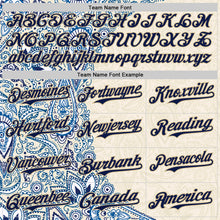 Team Name Font
ABCDEFGHIJKLM
NOPQRSTUVWXYZ
abcdefghijklmnopqrstuvwxyz
Team Name Font Example
Desmoines Fortwayne Knoxville
Hartford Newjersey Reading
Vancouver Burbank Pensacola
Queenbee Canada America